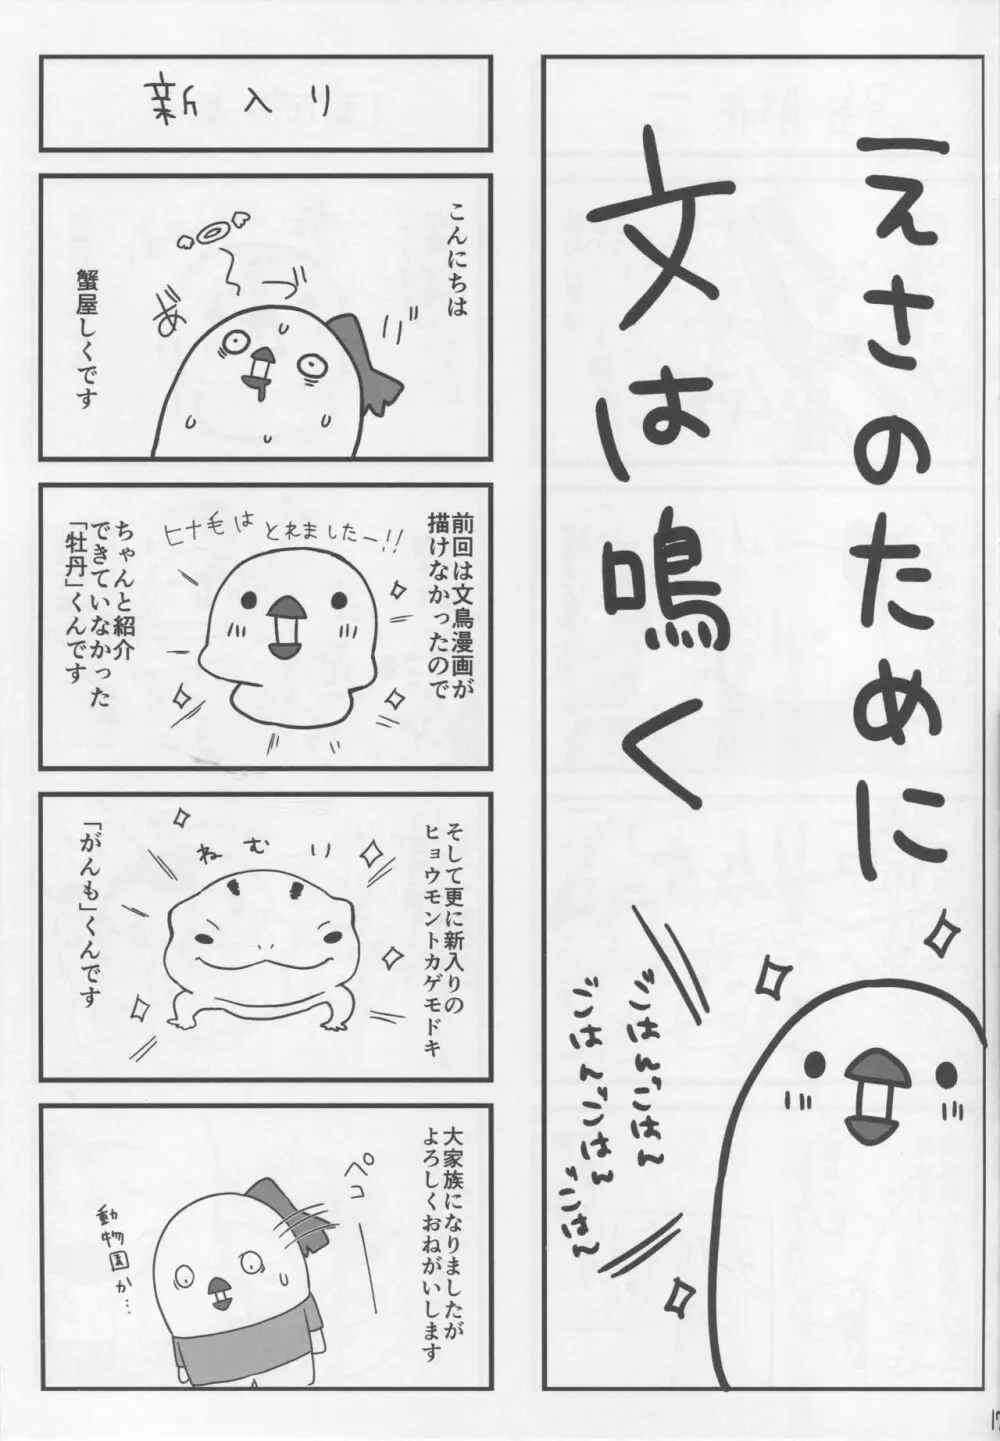 えさのために
文は鳴く
ごはんごはん
ごはんごはん
ごはん
新入り
こんにちは
蟹屋しくです
前回は文鳥漫画が
描けなかったので
ヒナ毛は とれましたー!!
ちゃんと紹介
できていなかった
「牡丹」くんです
そして更に新入りの
ヒョウモントカゲモドキ
ねむり
「がんも」くんです
大家族になりましたが
よろしくおねがいします
ペコ
動物園か…